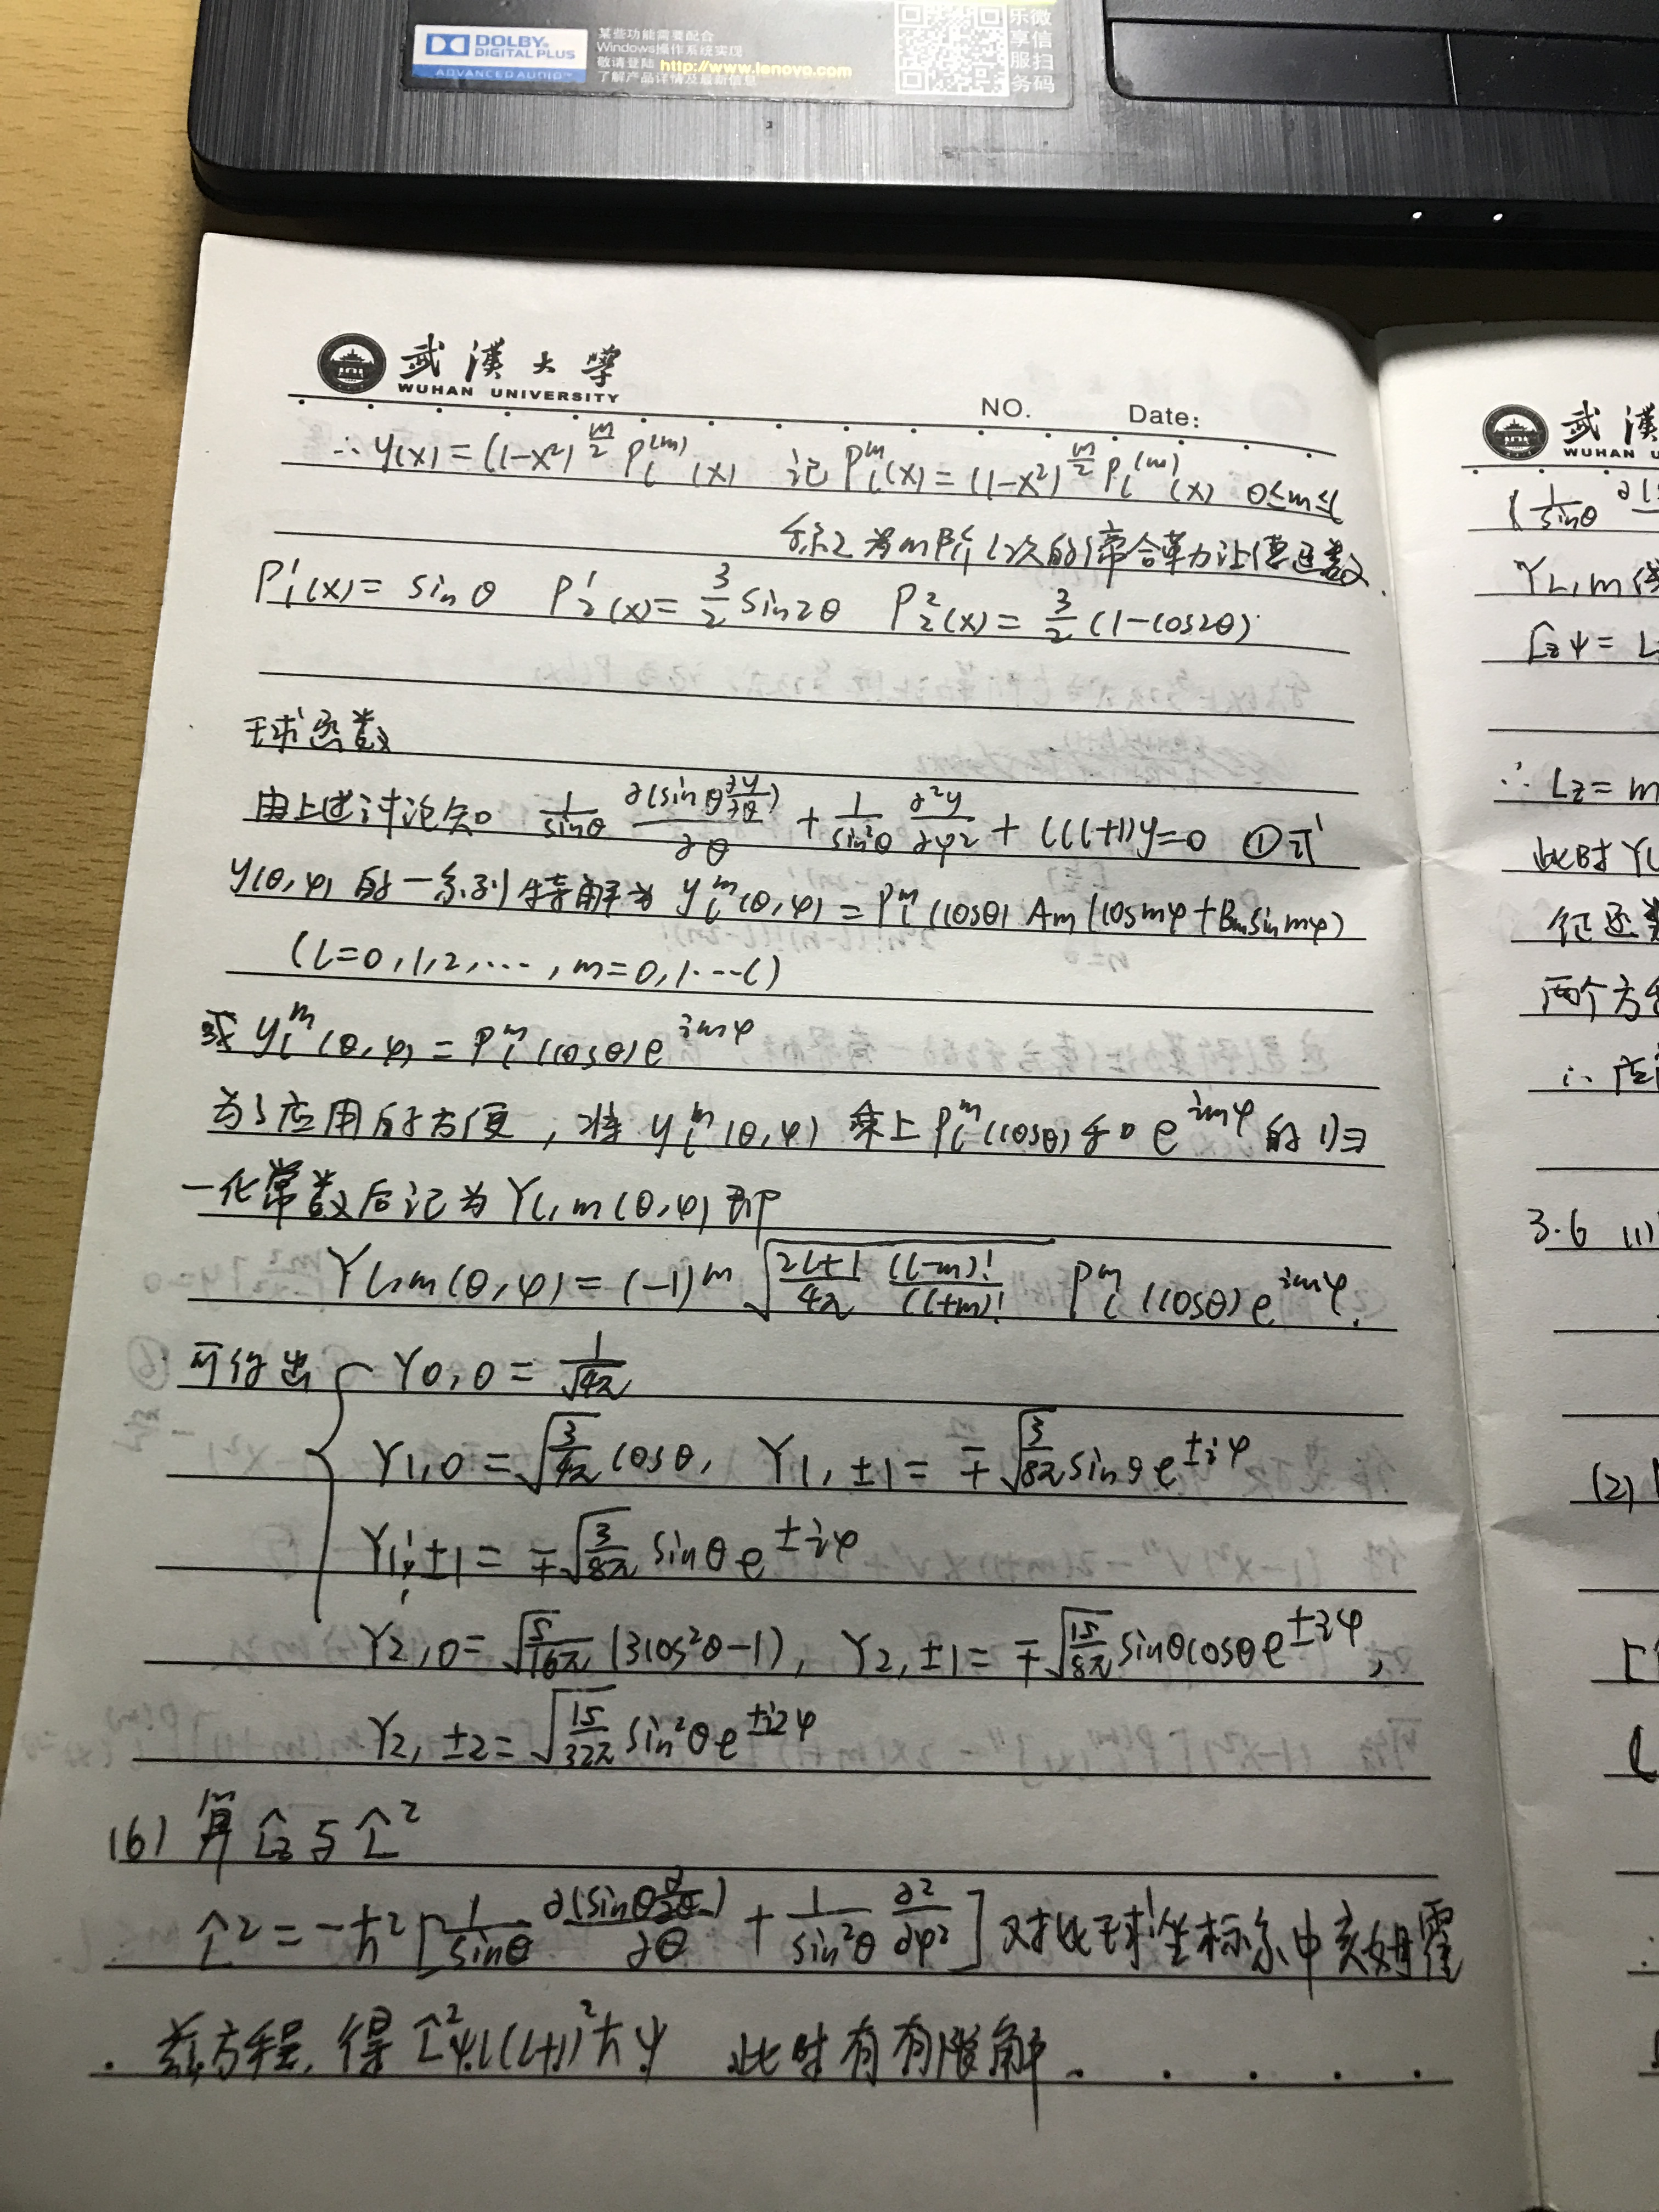 DOLBY
DIGITAL PLUS
ADVANCED AUDIO™
某些功能需要配合
Windows操作系统实现
敬请登陆 http://www.lenovo.com
了解产品详情及最新信息
乐微
享信
服扫
务码
武漢大學
WUHAN UNIVERSITY
NO. Date:
∴ y(x) = (1-x²)^{m/2} P_l^{(m)}(x) 记 P_l^m(x) = (1-x²)^{m/2} P_l^{(m)}(x) 0≤m≤l
称之为m阶l次的缔合勒让德函数.
P_1^1(x) = sinθ P_2^1(x) = 3/2 sin2θ P_2^2(x) = 3/2 (1-cos2θ)
球函数
由上述讨论知 1/sinθ ∂(sinθ ∂y/∂θ)/∂θ + 1/sin²θ ∂²y/∂φ² + l(l+1)y=0 ①式
y(θ,φ) 的一系列特解为 y_l^m(θ,φ) = P_l^m(cosθ) Am (cosmφ + Bm sinmφ)
(l=0,1,2,···, m=0,1···l)
或 y_l^m(θ,φ) = P_l^m(cosθ)e^{imφ}
为了应用的方便, 将 y_l^m(θ,φ) 乘上 P_l^m(cosθ)和 e^{imφ} 的归
一化常数后记为 Yl,m(θ,φ) 即
Yl,m(θ,φ) = (-1)^m √(2l+1/4π (l-m)!/(l+m)!) P_l^m(cosθ)e^{imφ}.
可得出 Y0,0 = 1/√4π
Y1,0 = √(3/4π) cosθ, Y1,±1 = ∓√(3/8π) sinθ e^{±iφ}
Y1,±1 = ∓√(3/8π) sinθ e^{±iφ}
Y2,0 = √(5/16π) (3cos²θ-1), Y2,±1 = ∓√(15/8π) sinθcosθ e^{±iφ},
Y2,±2 = √(15/32π) sin²θ e^{±i2φ}
(6) 算 L̂z 与 L̂²
L̂² = -ħ² [1/sinθ ∂(sinθ ∂/∂θ)/∂θ + 1/sin²θ ∂²/∂φ²] 对比球坐标系中亥姆霍
兹方程, 得 L̂²ψ l(l+1)²ħψ 此时有有限解.
武漢
WUHAN U
(1/sinθ
Yl,m
L̂zψ = L
∴ Lz = m
此时Y
征函数
两个方
∴
3.6 (1)
(2)